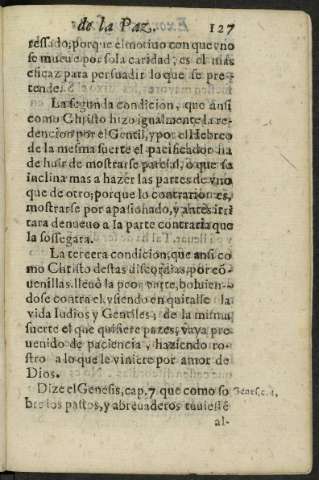 de la Paz. 127
ressado; porque el motiuo con que vno
se mueue por sola caridad, es el mas
eficaz para persuadir lo que se pre-
tende.
La segunda condicion, que ansi
como Christo hizo igualmente la re-
dencion por el Gentil, y por el Hebreo
de la mesma suerte el pacificador ha
de huir de mostrarse parcial, o que se
inclina mas a hazer las partes de vno
que de otro; porque lo contrario es,
mostrarse por apasionado, y antes irri
tara de nueuo a la parte contraria que
la sossegara.
La tercera condicion, que ansi co
mo Christo destas discordias, por cõ-
uenillas. lleuò la peor parte, boluien-
dose contra el, y siendo en quitalle la
vida Iudios y Gentiles; de la misma
suerte el que quisiere pazes, vaya pre-
uenido de paciencia, haziendo ro-
stro a lo que le viniere por amor de
Dios.
Dize el Genesis, cap. 7. que como so
bre los pastos, y abreuaderos tuuiessē
al-